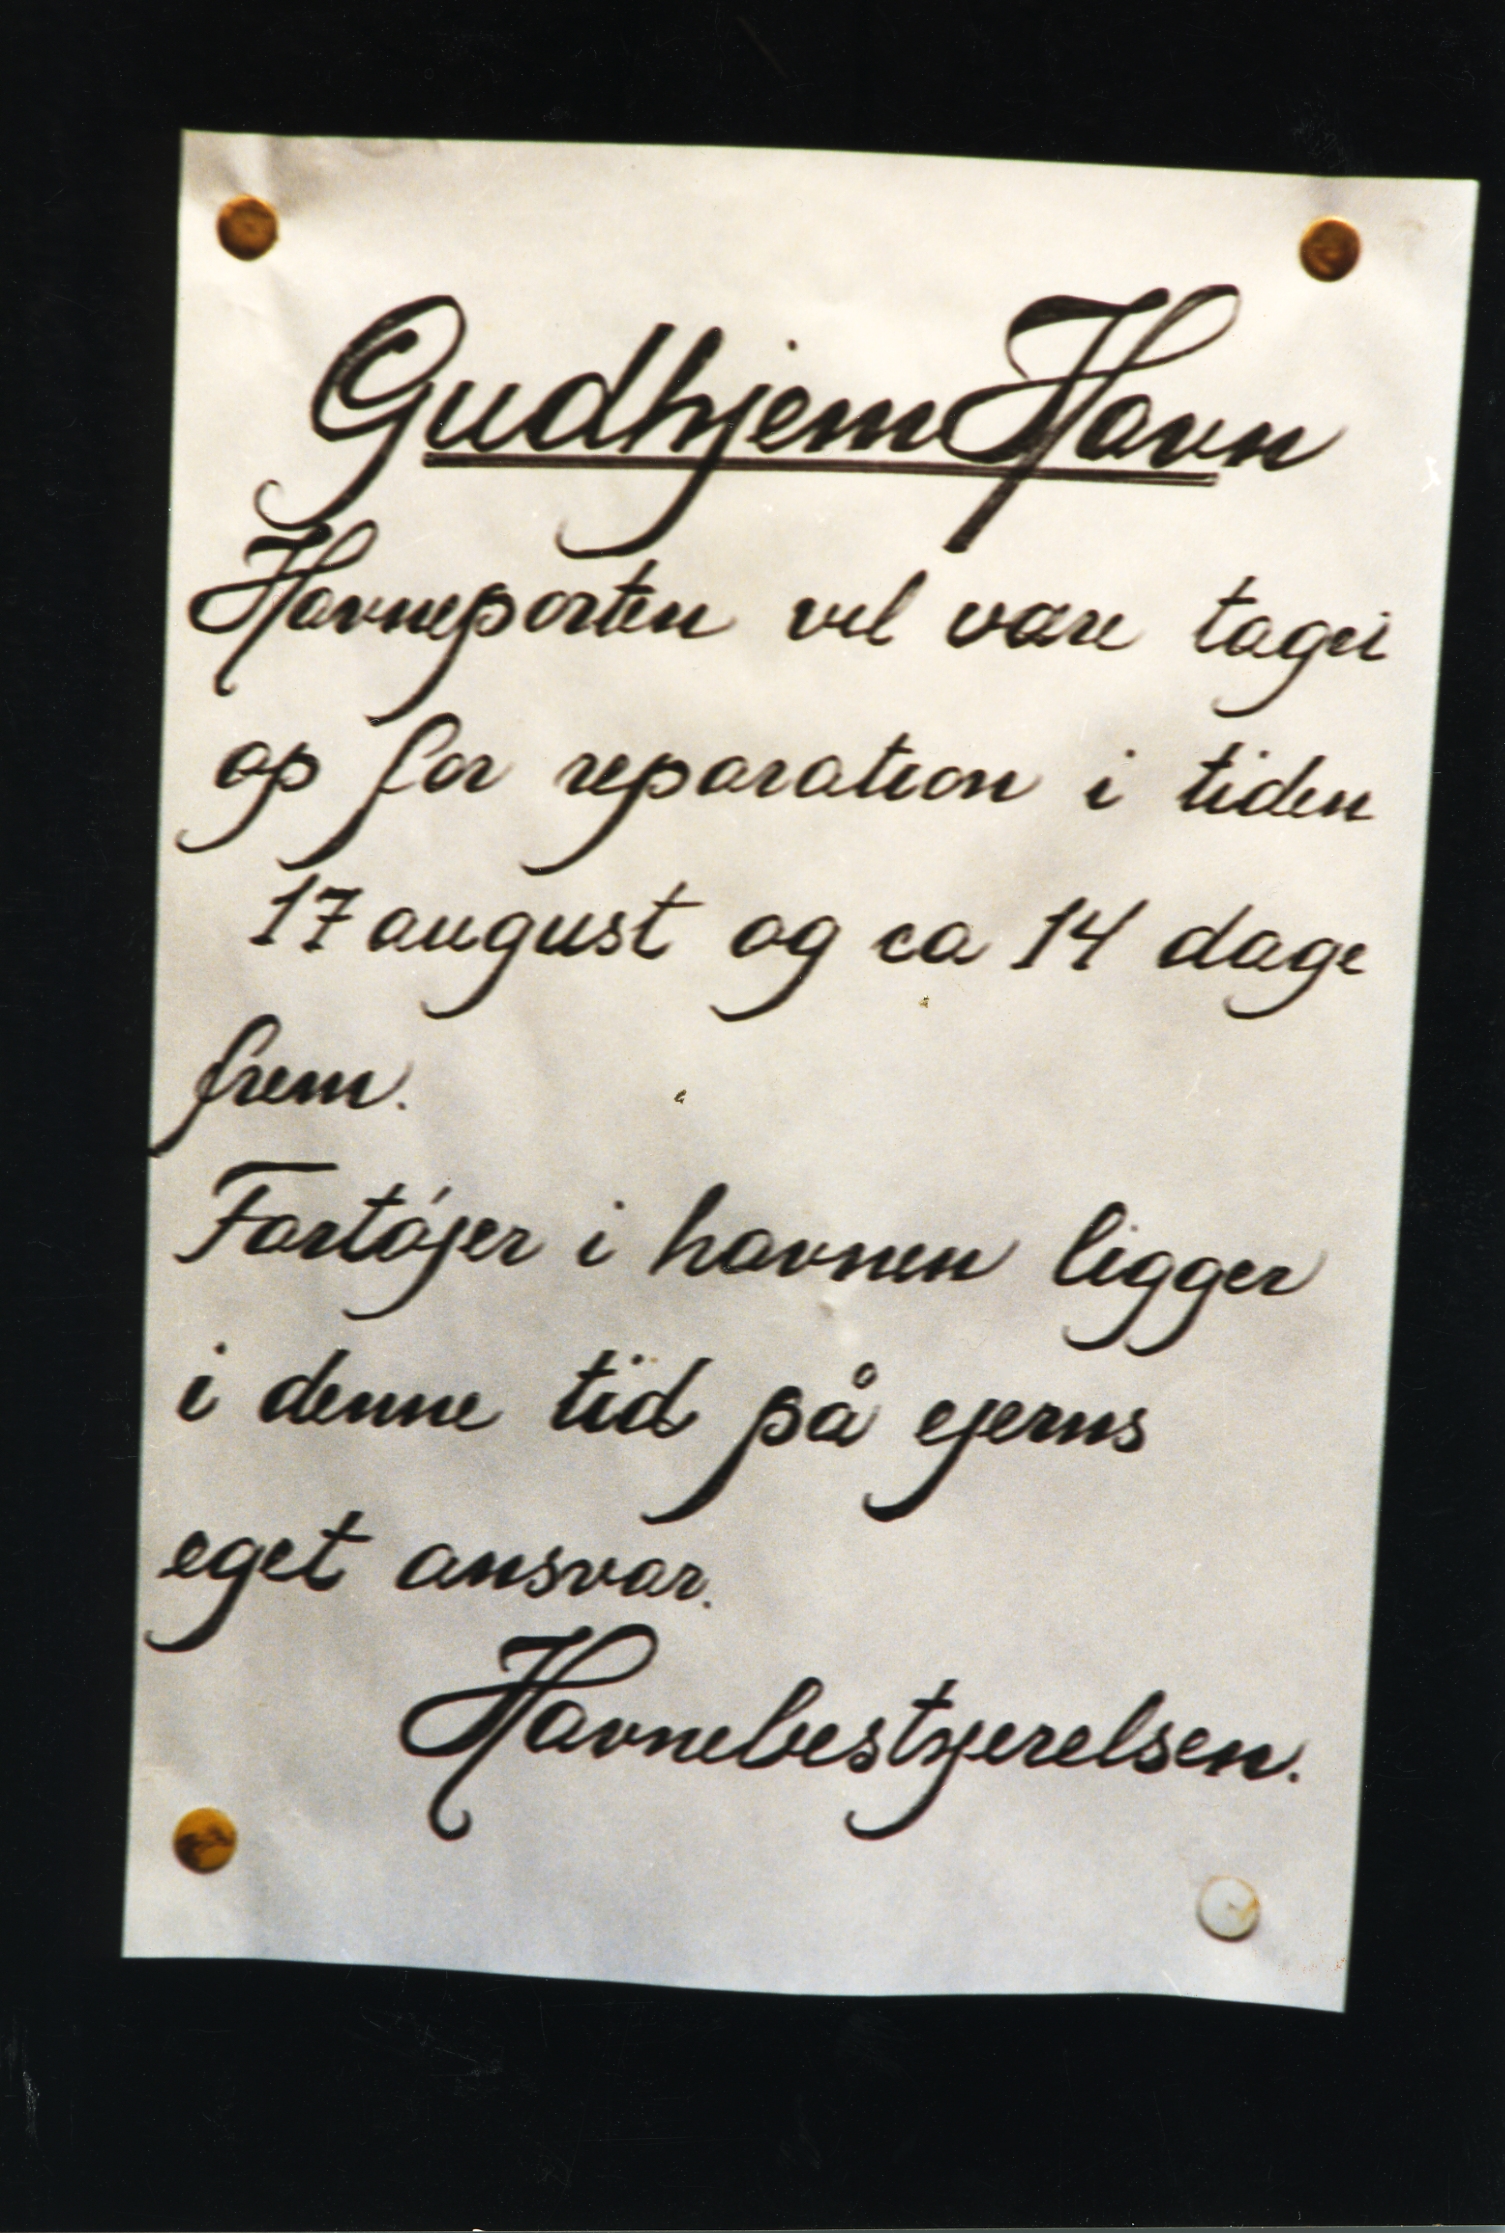 Gudhjem Havn
Havneporten vil være taget
op for reparation i tiden
17 august og ca 14 dage
frem.
Fartójer i havnen ligger
i denne tid på ejerns
eget ansvar.
Havnebestyerelsen.